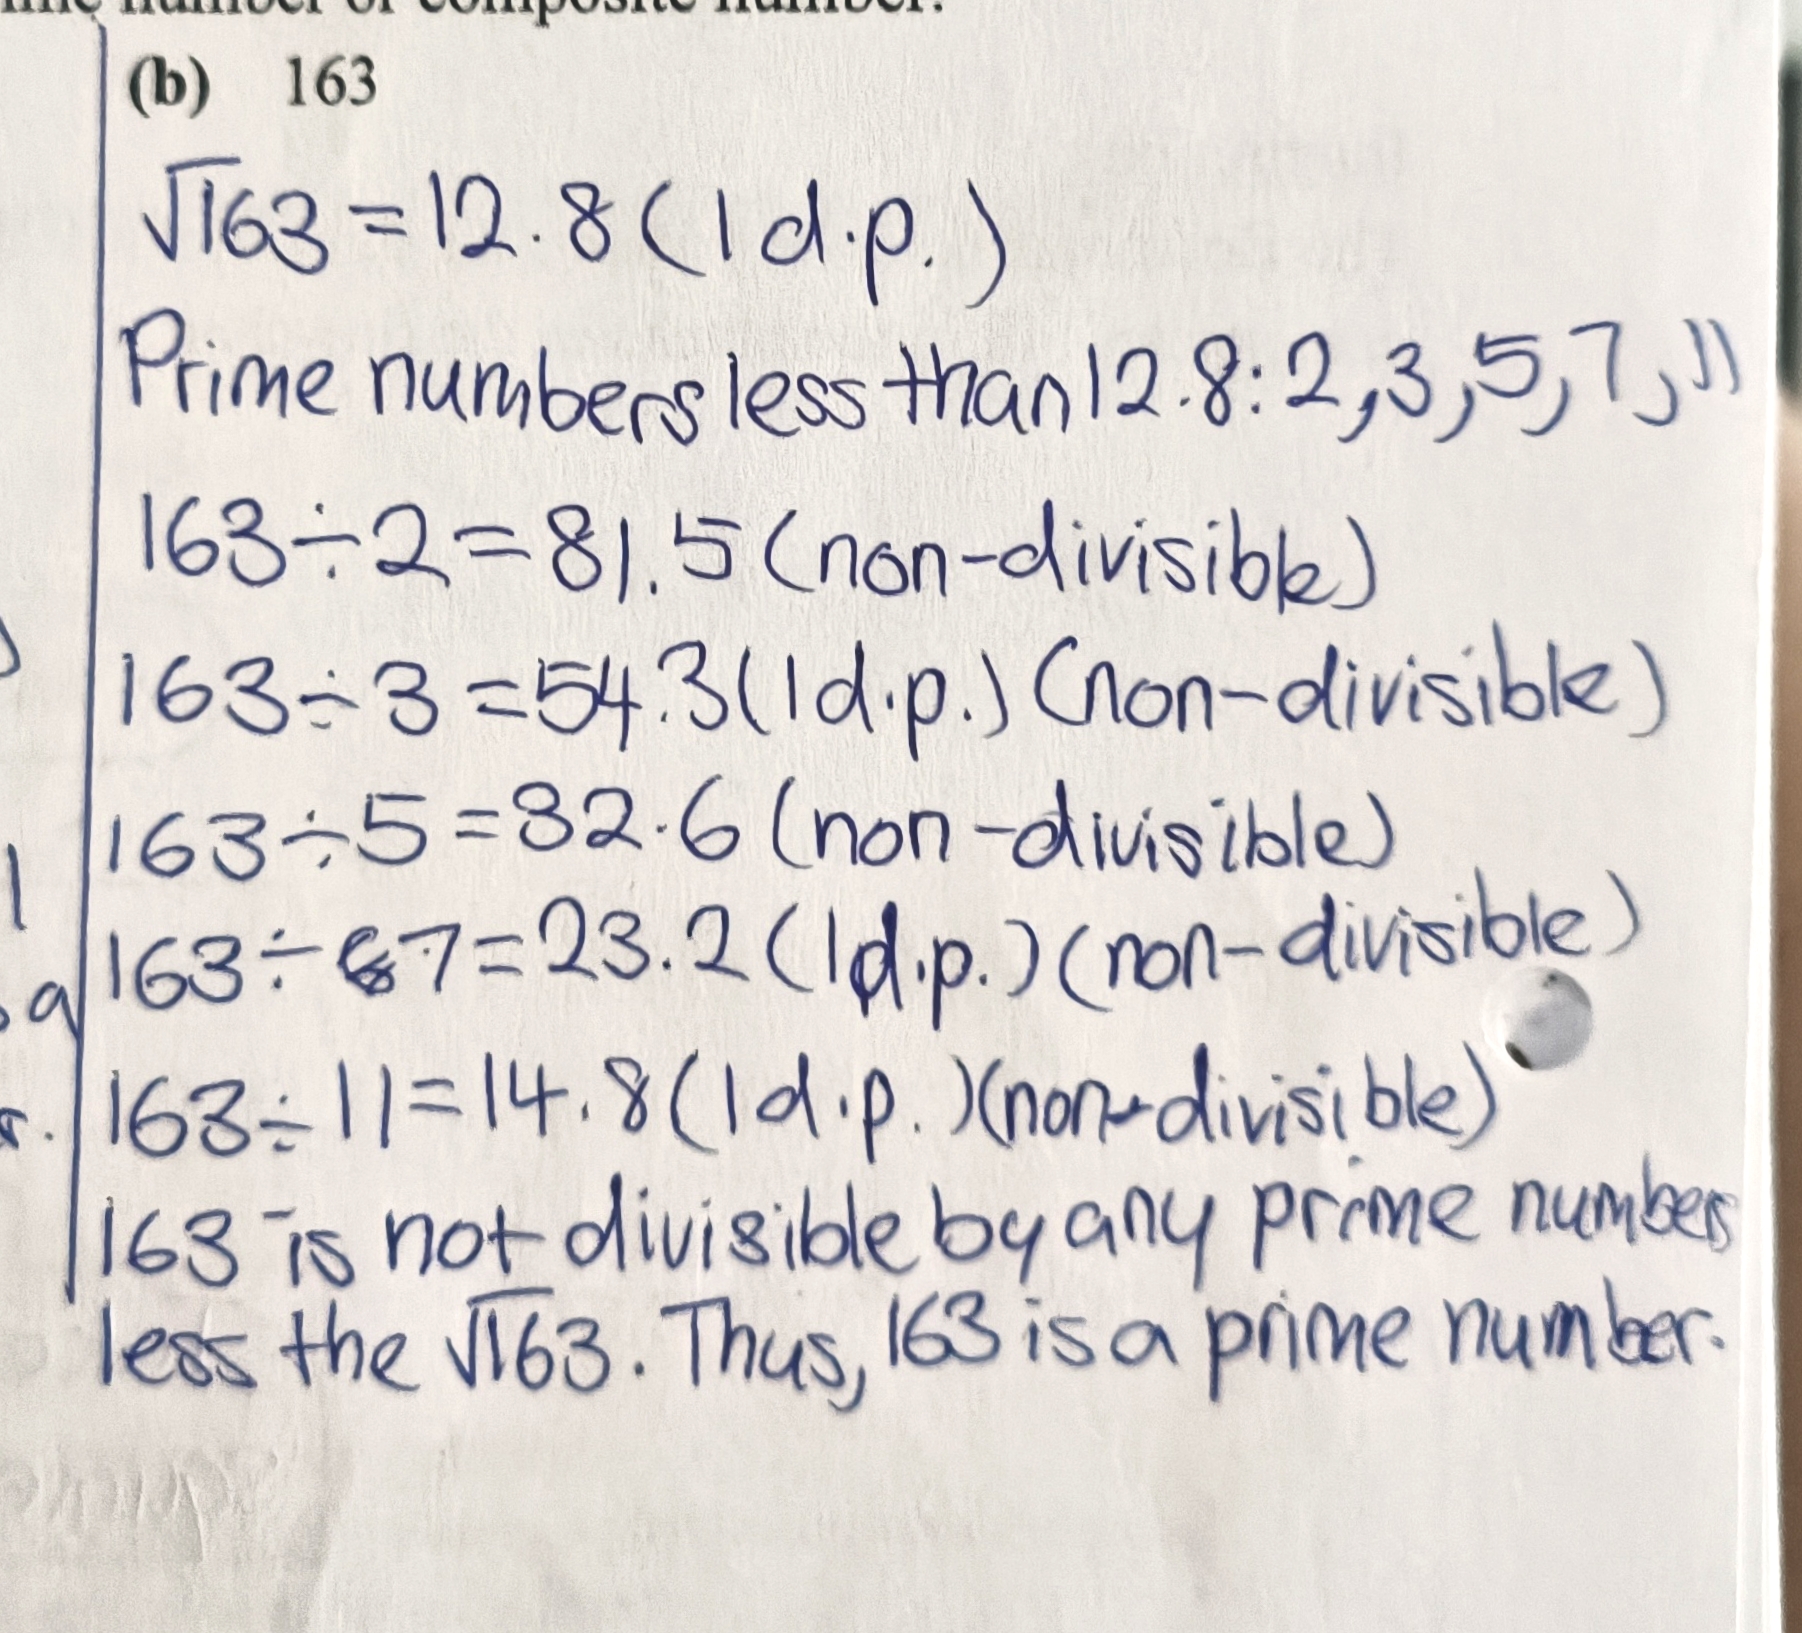 number or composite number.
(b) 163
√163 = 12.8 (1 d.p.)
Prime numbers less than 12.8: 2, 3, 5, 7, 11
163 ÷ 2 = 81.5 (non-divisible)
163 ÷ 3 = 54.3 (1 d.p.) (non-divisible)
163 ÷ 5 = 32.6 (non-divisible)
163 ÷ 7 = 23.2 (1 d.p.) (non-divisible)
163 ÷ 11 = 14.8 (1 d.p.) (non-divisible)
163 is not divisible by any prime numbers
less the √163. Thus, 163 is a prime number.